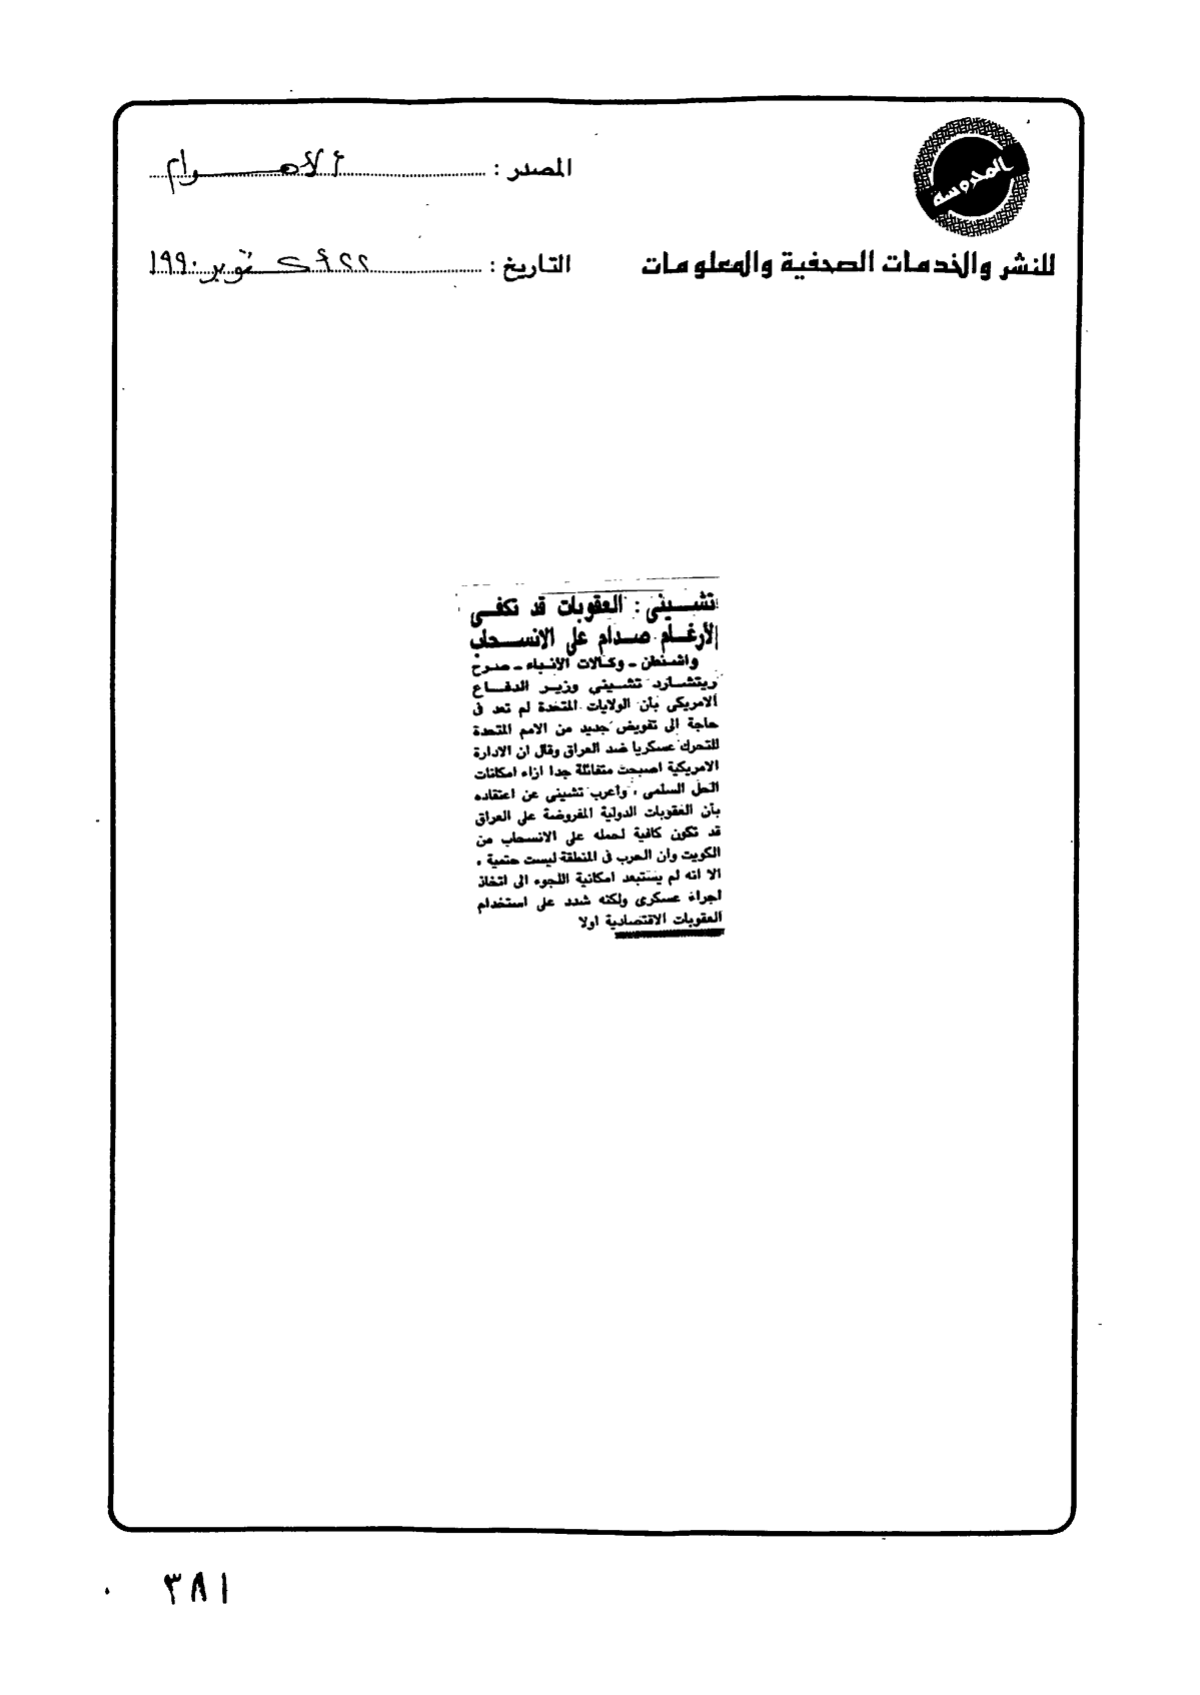 المحروسة
المصدر : الأهـــرام
للنشر والخدمات الصحفية والمعلومات
التاريخ : ٢٢ أكتوبر ١٩٩٠
تشـــينى : العقوبات قد تكفـــى
لأرغـــام صـدام على الانســـحاب
واشنطن ـ وكالات الأنباء ـ صرح
ريتشـارد تشـينى وزيـر الدفـاع
الامريكى بأن الولايات المتحدة لم تعد فى
حاجة الى تفويض جديد من الامم المتحدة
للتحرك عسكريا ضد العراق وقال ان الادارة
الامريكية اصبحت متفائلة جدا ازاء امكانات
الحل السلمى ، وأعرب تشينى عن اعتقاده
بأن العقوبات الدولية المفروضة على العراق
قد تكون كافية لحمله على الانسحاب من
الكويت وان الحرب فى المنطقة ليست حتمية .
الا انه لم يستبعد امكانية اللجوء الى اتخاذ
اجراء عسكرى ولكنه شدد على استخدام
العقوبات الاقتصادية اولا
٣٨١